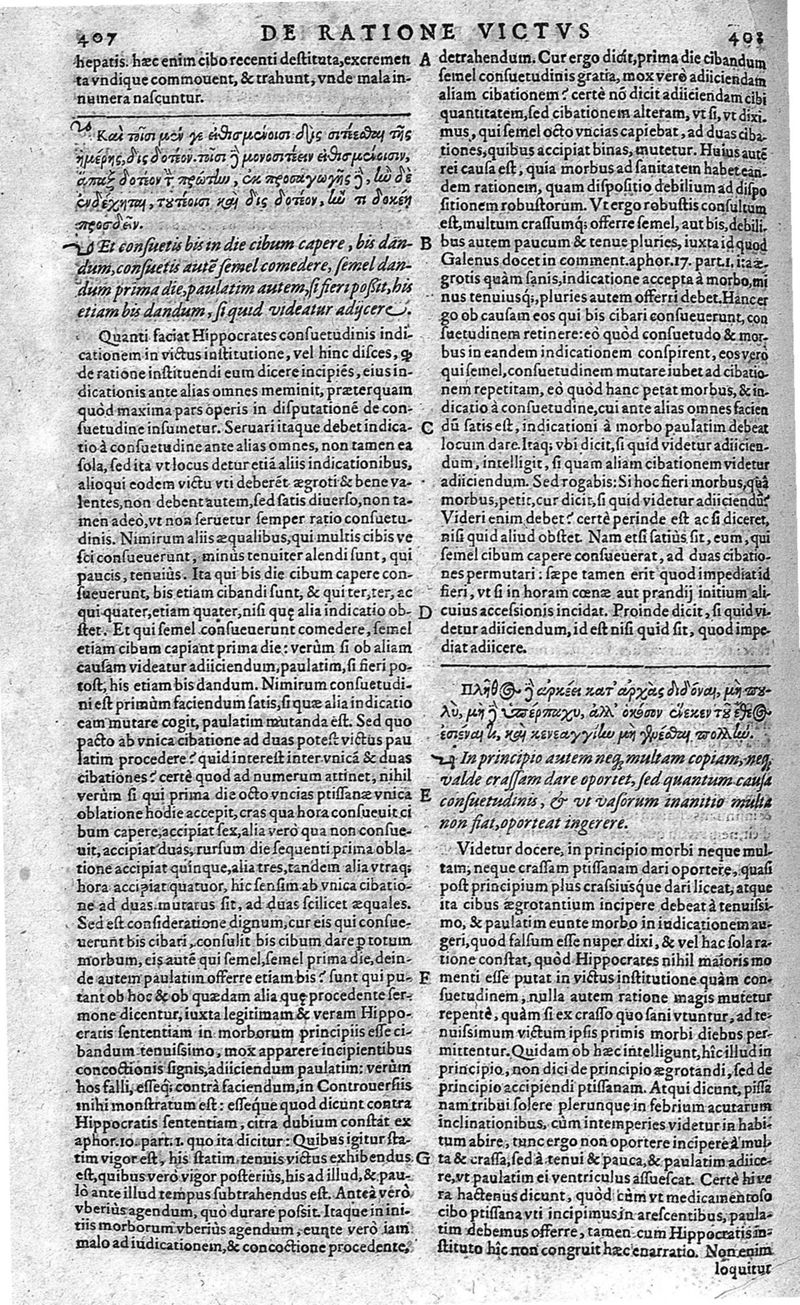 407 DE RATIONE VICTVS 408
hepatis. hæc enim cibo recenti destituta, excremen
ta vndique commouent, & trahunt, vnde mala in-
numera nascuntur.
Καὶ τοῖσι μέν γε εἰθισμένοισι δὶς σιτέεσθαι τῆς
ἡμέρης, δὶς δοτέον. τοῖσι ἢ μονοσιτέειν εἰθισμένοισιν,
ἅπαξ δοτέον τ πρώτlω, ἐκ προσαγωγῆς ἢ, lω δὲ
ἐνδέχηται, τουτέοισι καὶ δὶς δοτέον, lω τι δοκέῃ
προσδεῖν.
Et consuetis bis in die cibum capere, bis dan-
dum, consuetis autē semel comedere, semel dan-
dum prima die, paulatim autem, si fieri poßit, bis
etiam bis dandum, si quid videatur adijcere.
Quanti faciat Hippocrates consuetudinis indi-
cationem in victus institutione, vel hinc disces, ꝙ
de ratione instituendi eum dicere incipiēs, eius in-
dicationis ante alias omnes meminit, præterquam
quòd maxima pars operis in disputationē de con-
suetudine insumetur. Seruari itaque debet indica-
tio à consuetudine ante alias omnes, non tamen ea
sola, sed ita vt locus detur etiā aliis indicationibus,
alioqui eodem victu vti deberēt ægroti & bene va-
lentes, non debent autem, sed satis diuerso, non ta-
men adeò, vt non seruetur semper ratio consuetu-
dinis. Nimirum aliis æqualibus, qui multis cibis ve
sci consueuerunt, minùs tenuiter alendi sunt, qui
paucis, tenuiùs. Ita qui bis die cibum capere con-
sueuerunt, bis etiam cibandi sunt, & qui ter, ter, ac
qui quater, etiam quater, nisi quę alia indicatio ob-
stet. Et qui semel consueuerunt comedere, semel
etiam cibum capiant prima die: verùm si ob aliam
causam videatur adiiciendum, paulatim, si fieri po-
test, his etiam bis dandum. Nimirum consuetudi-
ni est primùm faciendum satis, si quæ alia indicatio
eam mutare cogit, paulatim mutanda est. Sed quo
pacto ab vnica cibatione ad duas potest victus pau
latim procedere? quid interest inter vnicā & duas
cibationes? certè quod ad numerum attinet, nihil
verùm si qui prima die octo vncias ptissanæ vnica
oblatione hodie accepit, cras qua hora consueuit ci
bum capere, accipiat sex, alia verò qua non consue-
uit, accipiat duas, rursum die sequenti prima obla-
tione accipiat quinque, alia tres, tandem alia vtraq;
hora accipiat quatuor, hic sensim ab vnica cibatio-
ne ad duas mutatus sit, ad duas scilicet æquales.
Sed est consideratione dignum, cur eis qui consue-
uerunt bis cibari, consulit bis cibum dare ꝑ totum
morbum, eis autē qui semel, semel prima die, dein-
de autem paulatim offerre etiam bis? sunt qui pu-
tant ob hoc & ob quædam alia quę procedente ser-
mone dicentur, iuxta legitimam & veram Hippo-
cratis sententiam in morborum principiis esse ci-
bandum tenuissimo, mox apparere incipientibus
concoctionis signis, adiiciendum paulatim: verùm
hos falli, esseq; contrà faciendum, in Controuersiis
mihi monstratum est: esseque quod dicunt contra
Hippocratis sententiam, citra dubium constāt ex
aphor. 10. part. 1. quo ita dicitur: Quibus igitur sta-
tim vigor est, his statim tenuis victus exhibendus
est, quibus verò vigor posterius, his ad illud, & pau-
lò ante illud tempus subtrahendus est. Anteà verò
vberiùs agendum, quò durare possit. Itaque in ini-
tiis morborum vberiùs agendum, eunte verò iam
malo ad iudicationem, & concoctione procedente,
A detrahendum. Cur ergo dicit, prima die cibandum
semel consuetudinis gratia, mox verò adiiciendam
aliam cibationem? certè nō dicit adiiciendam cibi
quantitatem, sed cibationem alteram, vt si, vt dixi-
mus, qui semel octo vncias capiebat, ad duas ciba-
tiones, quibus accipiat binas, mutetur. Huius autē
rei causa est, quia morbus ad sanitatem habet ean-
dem rationem, quam dispositio debilium ad dispo
sitionem robustorum. Vt ergo robustis consultum
est, multum crassumq; offerre semel, aut bis, debili-
B bus autem paucum & tenue pluries, iuxta id quod
Galenus docet in comment. aphor. 17. part. 1, ita æ-
grotis quàm sanis, indicatione accepta à morbo, mi
nus tenuiusq;, pluries autem offerri debet. Hanc er
go ob causam eos qui bis cibari consueuerunt, con
suetudinem retinere: eò quòd consuetudo & mor-
bus in eandem indicationem conspirent, eos verò
qui semel, consuetudinem mutare iubet ad cibatio-
nem repetitam, eò quòd hanc petat morbus, & in-
dicatio à consuetudine, cui ante alias omnes facien
C dū satis est, indicationi à morbo paulatim debeat
locum dare. Itaq; vbi dicit, si quid videtur adiicien-
dum, intelligit, si quam aliam cibationem videtur
adiiciendum. Sed rogabis: Si hoc fieri morbus, quà
morbus, petit, cur dicit, si quid videtur adiiciendū?
Videri enim debet? certè perinde est ac si diceret,
nisi quid aliud obstet. Nam etsi satiùs sit, eum, qui
semel cibum capere consueuerat, ad duas cibatio-
nes permutari: sæpe tamen erit quod impediat id
fieri, vt si in horam cœnæ aut prandij initium ali-
D cuius accessionis incidat. Proinde dicit, si quid vi-
detur adiiciendum, id est nisi quid sit, quod impe-
diat adiicere.
Πλῆθος ἢ ἀρκέει κατ' ἀρχὰς διδόναι, μὴ που-
λὺ, μὴ ἢ ὑπέρπαχυ, ἀλλ' ὁκόσον εἵνεκεν τοῦ ἔθεος
ἐσιέναι τι, καὶ κενεαγγείlω μὴ γρέεσθαι πολλlω.
In principio autem neq; multam copiam, neq;
valde crassam dare oportet, sed quantum causa
E consuetudinis, & vt vasorum inanitio multa
non fiat, oporteat ingerere.
Videtur docere, in principio morbi neque mul-
tam, neque crassam ptissanam dari oportere, quasi
post principium plus crassiusque dari liceat, atque
ita cibus ægrotantium incipere debeat à tenuissi-
mo, & paulatim eunte morbo in iudicationem au-
geri, quod falsum esse nuper dixi, & vel hac sola ra-
tione constat, quòd Hippocrates nihil maioris mo
F menti esse putat in victus institutione quàm con-
suetudinem, nulla autem ratione magis mutetur
repentè, quàm si ex crasso quo sani vtuntur, ad te-
nuissimum victum ipsis primis morbi diebus per-
mittentur. Quidam ob hæc intelligunt, hîc illud in
principio, non dici de principio ægrotandi, sed de
principio accipiendi ptissanam. Atqui dicunt, ptissa
nam tribui solere plerunque in febrium acutarum
inclinationibus, cùm intemperies videtur in habi-
tum abire, tunc ergo non oportere incipere à mul
G ta & crassa, sed à tenui & pauca, & paulatim adiice-
re, vt paulatim ei ventriculus assuescat. Certè hi ve
ra hactenus dicunt, quòd cùm vt medicamentoso
cibo ptissana vti incipimus in arescentibus, paula-
tim debemus offerre, tamen cum Hippocratis in-
stituto hîc non congruit hæc enarratio. Non enim
loquitur